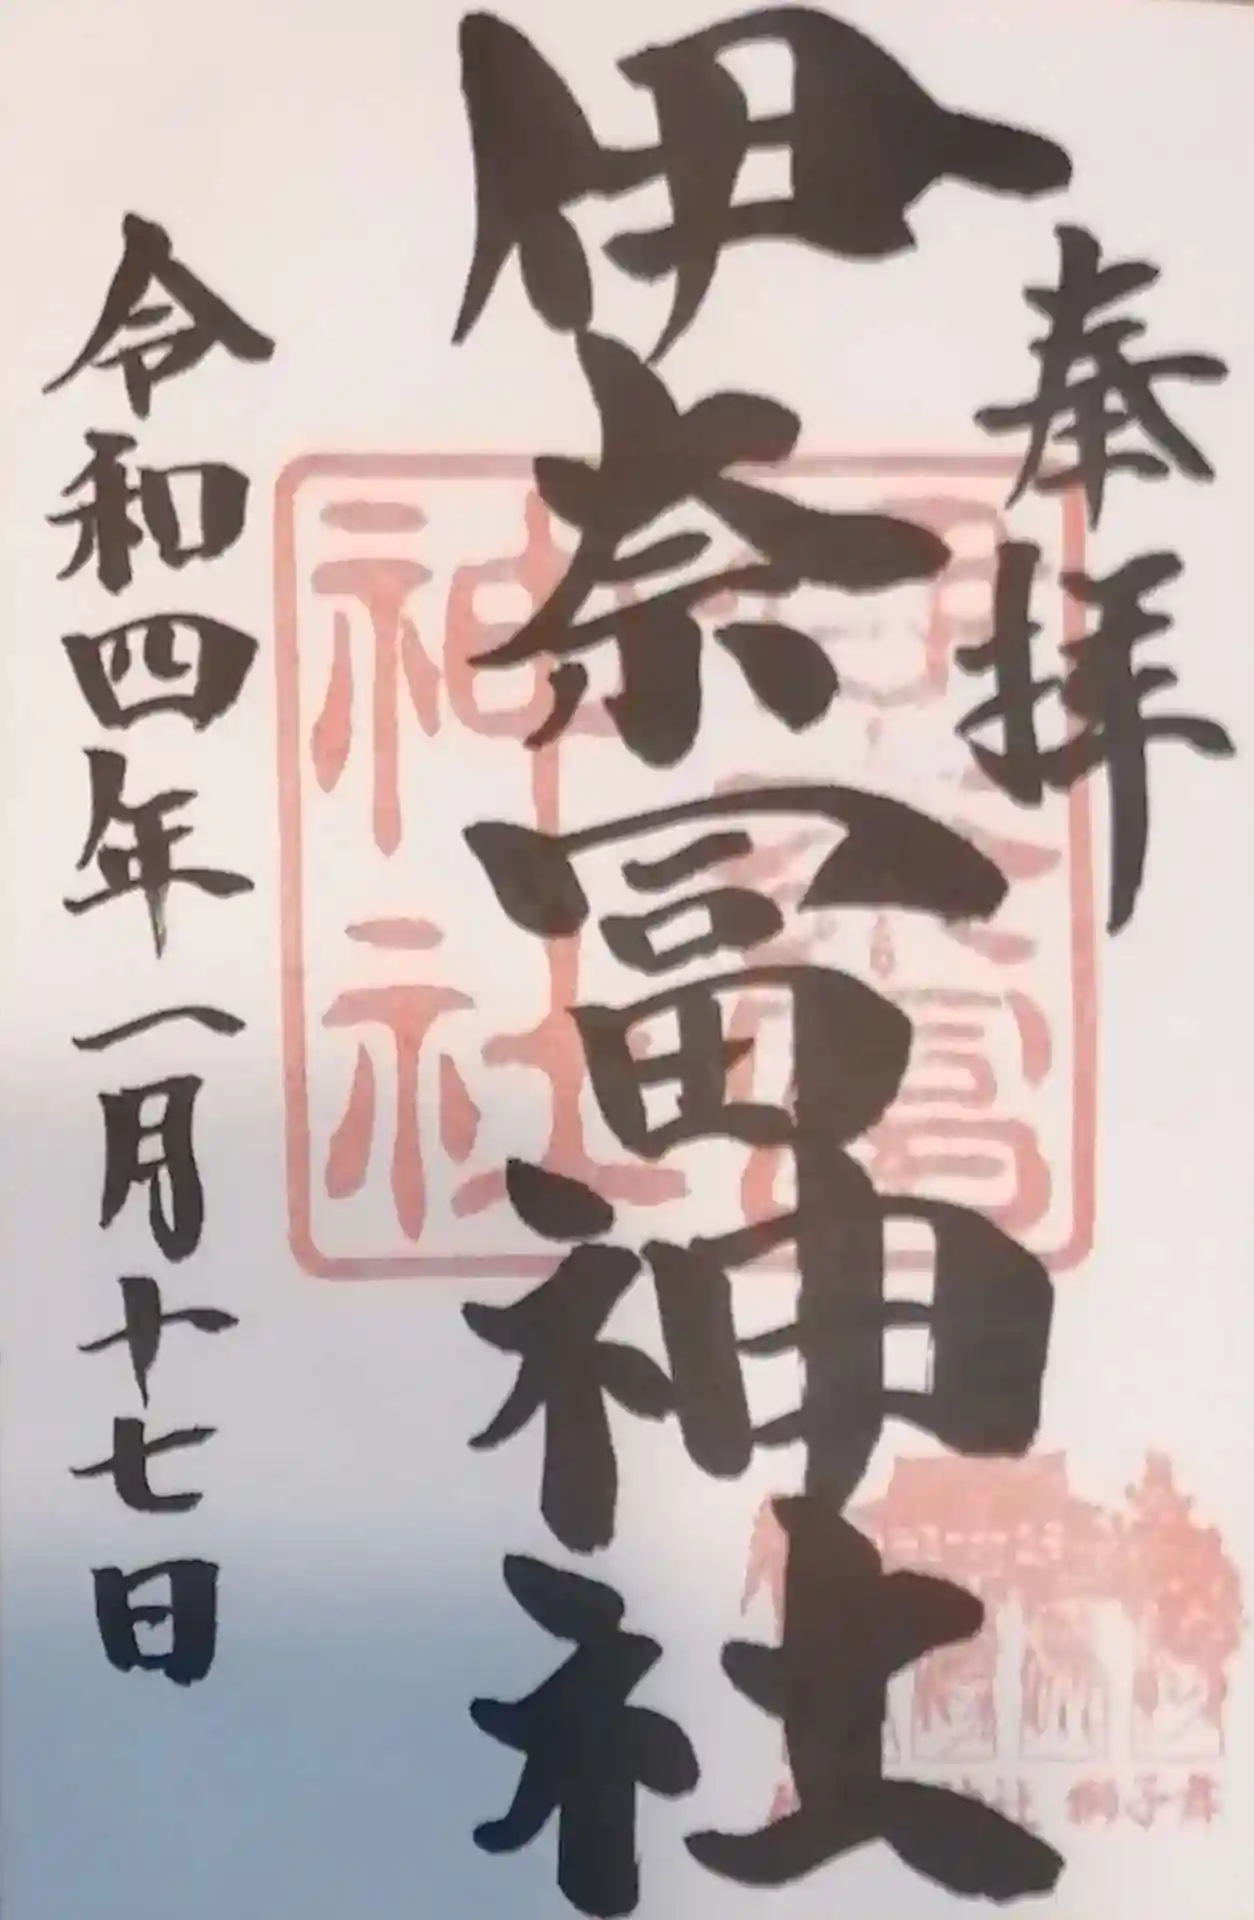 奉拝
伊奈冨神社
令和四年一月十七日
神社
獅子舞